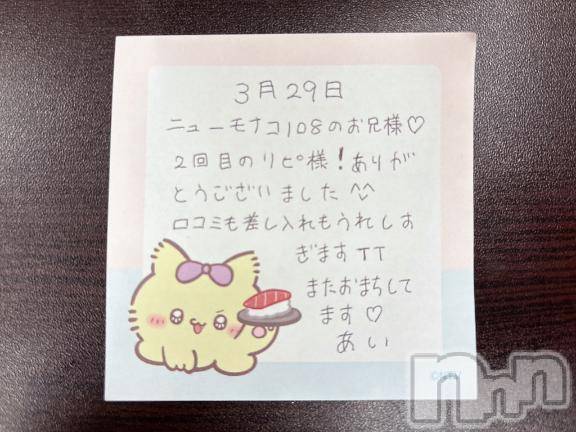 3月29日
ニューモナコ108のお兄様♡
2回目のリピ様！ありが
とうございました^^
口コミも差し入れもうれしす
ぎますTT
またおまちして
ます♡
あい
nnn